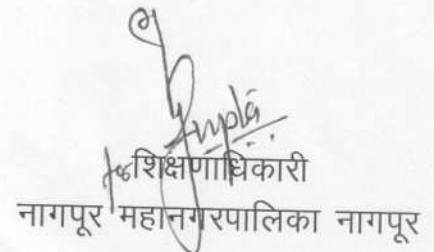 Gupta
शिक्षणाधिकारी
नागपूर महानगरपालिका नागपूर